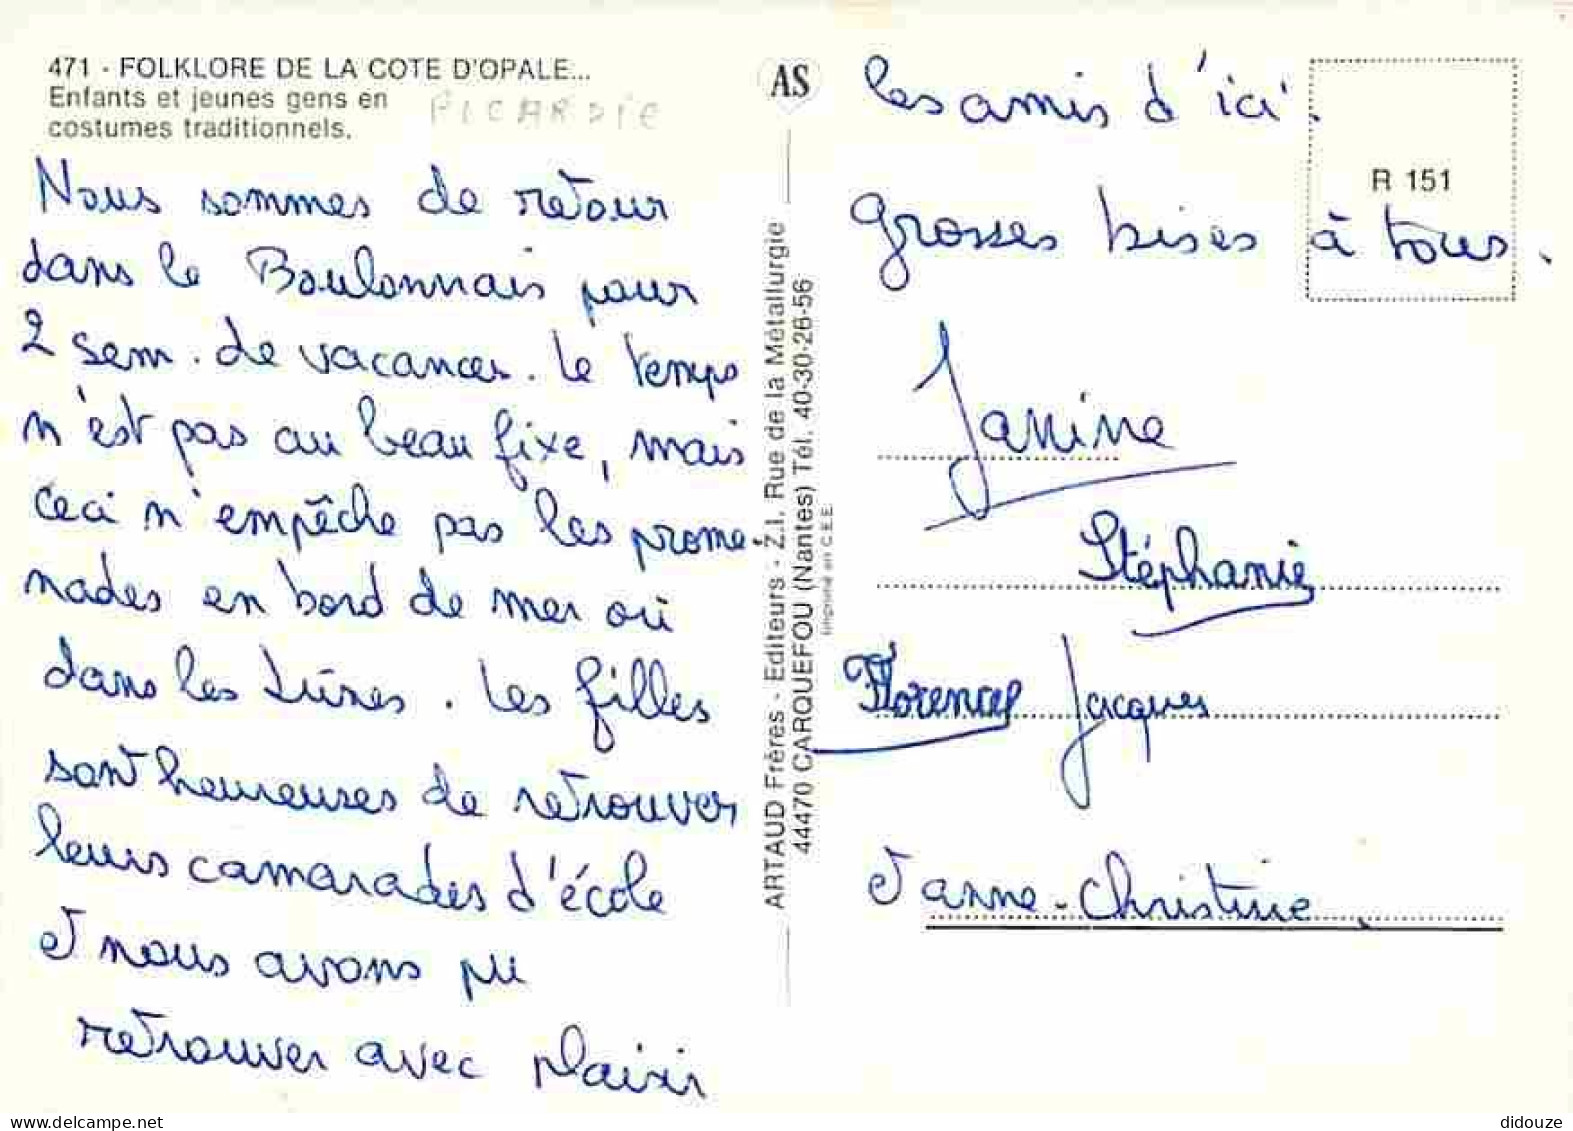 471 - FOLKLORE DE LA COTE D'OPALE...
Enfants et jeunes gens en
costumes traditionnels.
PICARDIE
Nous sommes de retour
dans le Boulonnais pour
2 sem. de vacances. Le temps
n'est pas au beau fixe, mais
ceci n'empêche pas les prome-
nades en bord de mer où
dans les dunes. Les filles
sont heureuses de retrouver
leurs camarades d'école
et nous avons pu
retrouver avec plaisir
AS
ARTAUD Frères - Editeurs - Z.I. Rue de la Métallurgie
44470 CARQUEFOU (Nantes) Tél. 40-30-26-56
Imprimé en C.E.E.
les amis d'ici.
R 151
Grosses bises à tous.
Janine
Stéphanie
Florence Jacques
et anne-Christine.
didouze